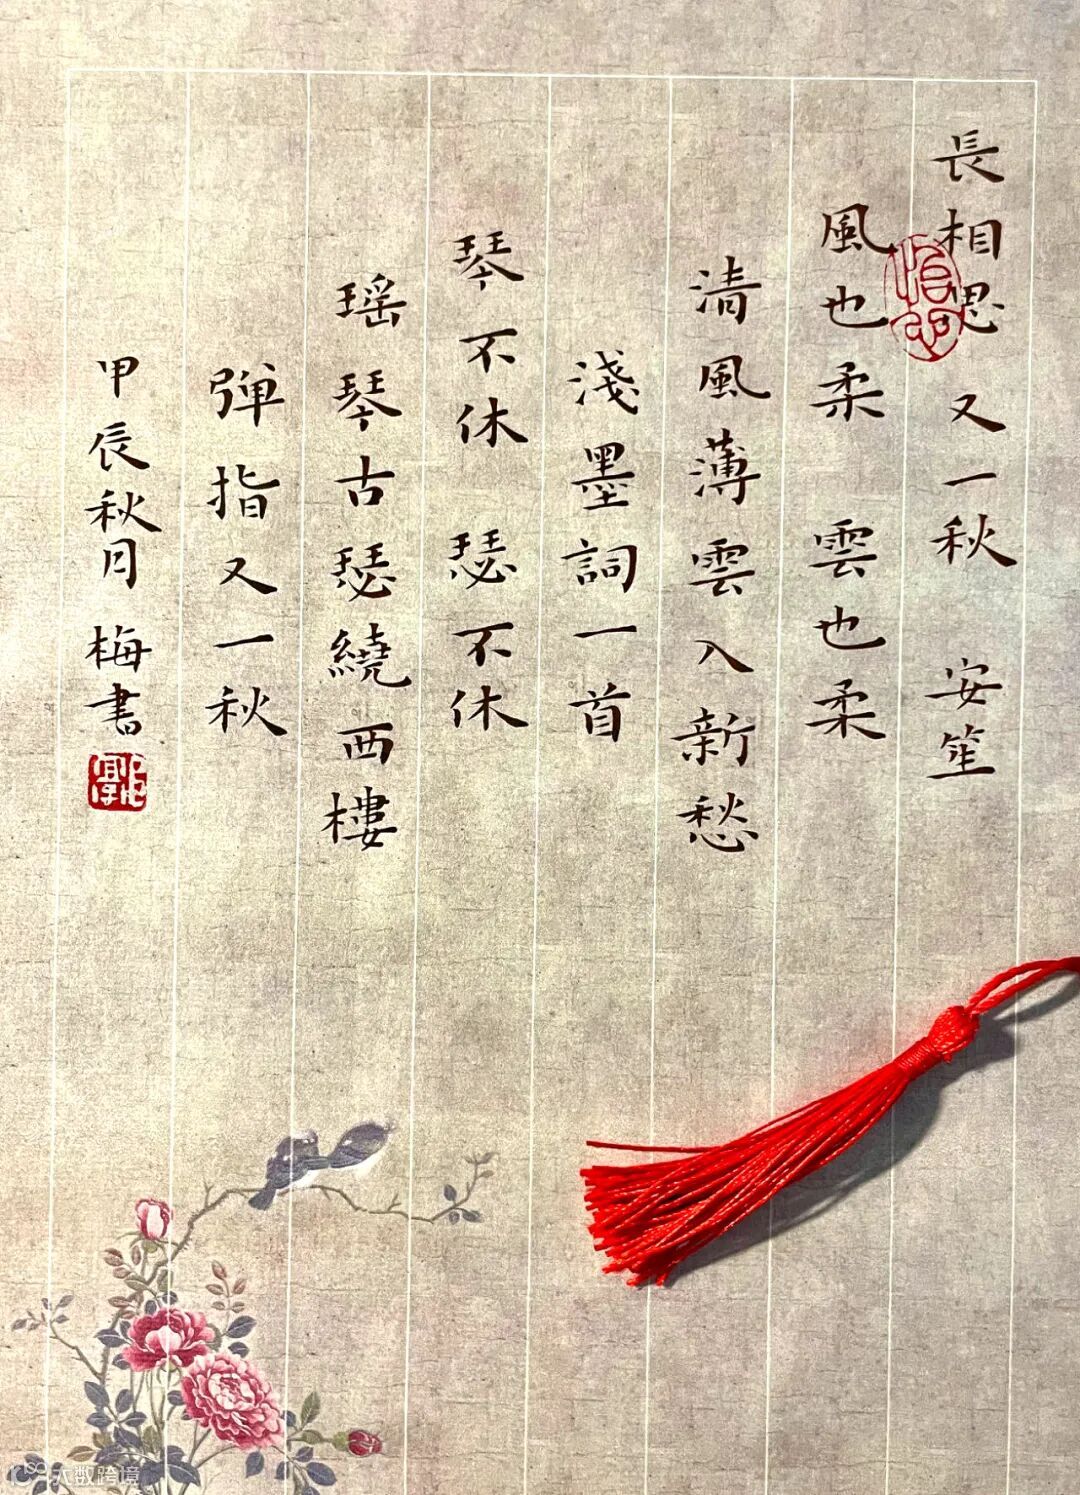 長相思 又一秋 安笙
風也柔 雲也柔
清風薄雲入新愁
淺墨詞一首
琴不休 瑟不休
瑶琴古瑟繞西樓
弹指又一秋
甲辰秋月 梅書
大数跨境